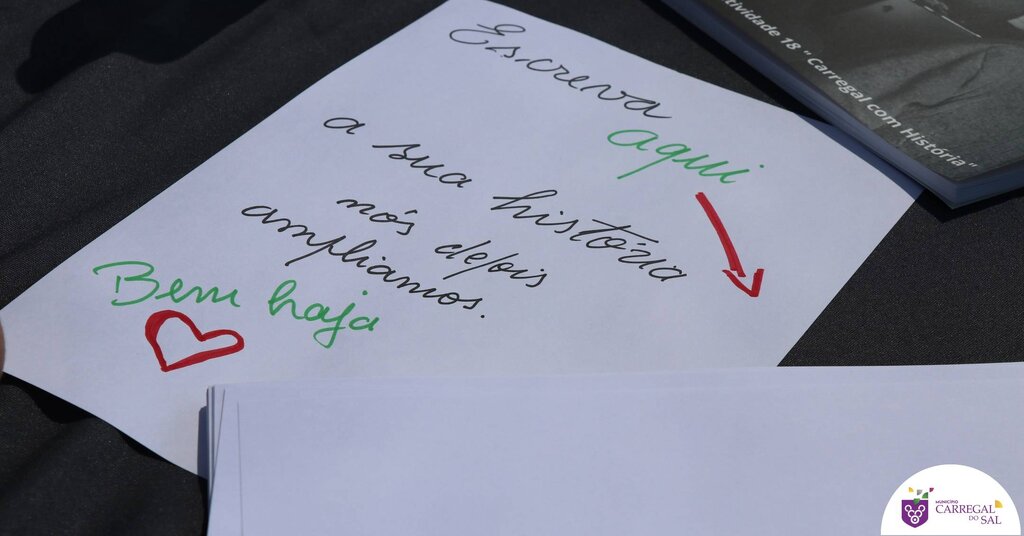 Escreva
aqui
a sua história
nós depois
ampliamos.
Bem haja
tividade 18 " Carregal com História"
MUNICÍPIO
CARREGAL
DO SAL